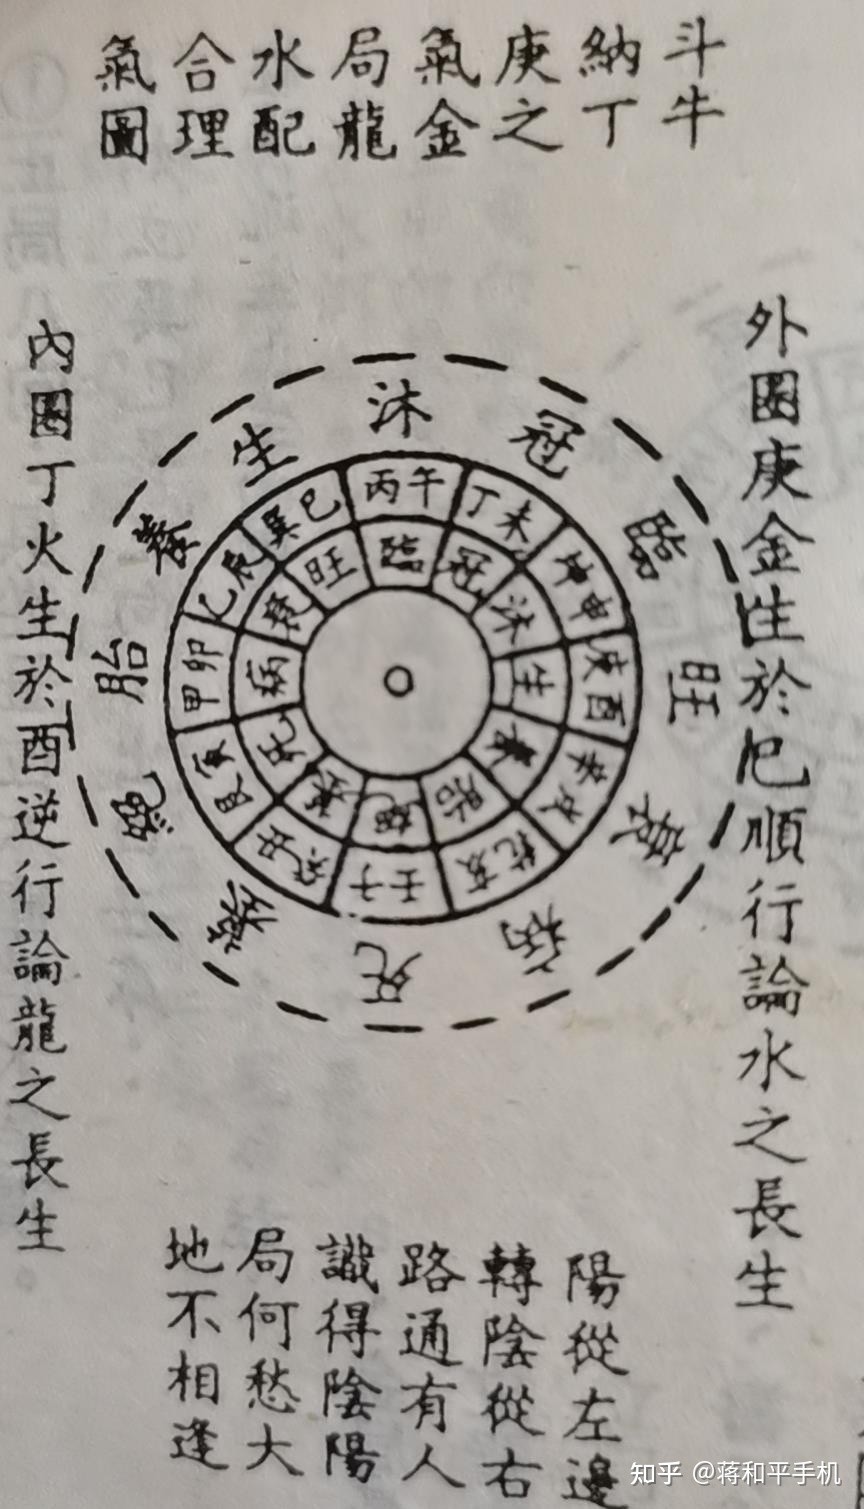 斗牛
納丁
庚之
氣金
局龍
水配
合理
氣圖
外圈庚金生於巳順行論水之長生
內圈丁火生於酉逆行論龍之長生
沐
冠
臨
旺
衰
病
死
墓
絕
胎
養
生
丙午
丁未
坤申
庚酉
辛戌
乾亥
壬子
癸丑
艮寅
甲卯
乙辰
巽巳
臨
冠
沐
生
養
胎
絕
墓
死
病
衰
旺
陽從左邊
轉陰從右
路通有人
識得陰陽
局何愁大
地不相逢
知乎 @蒋和平手机